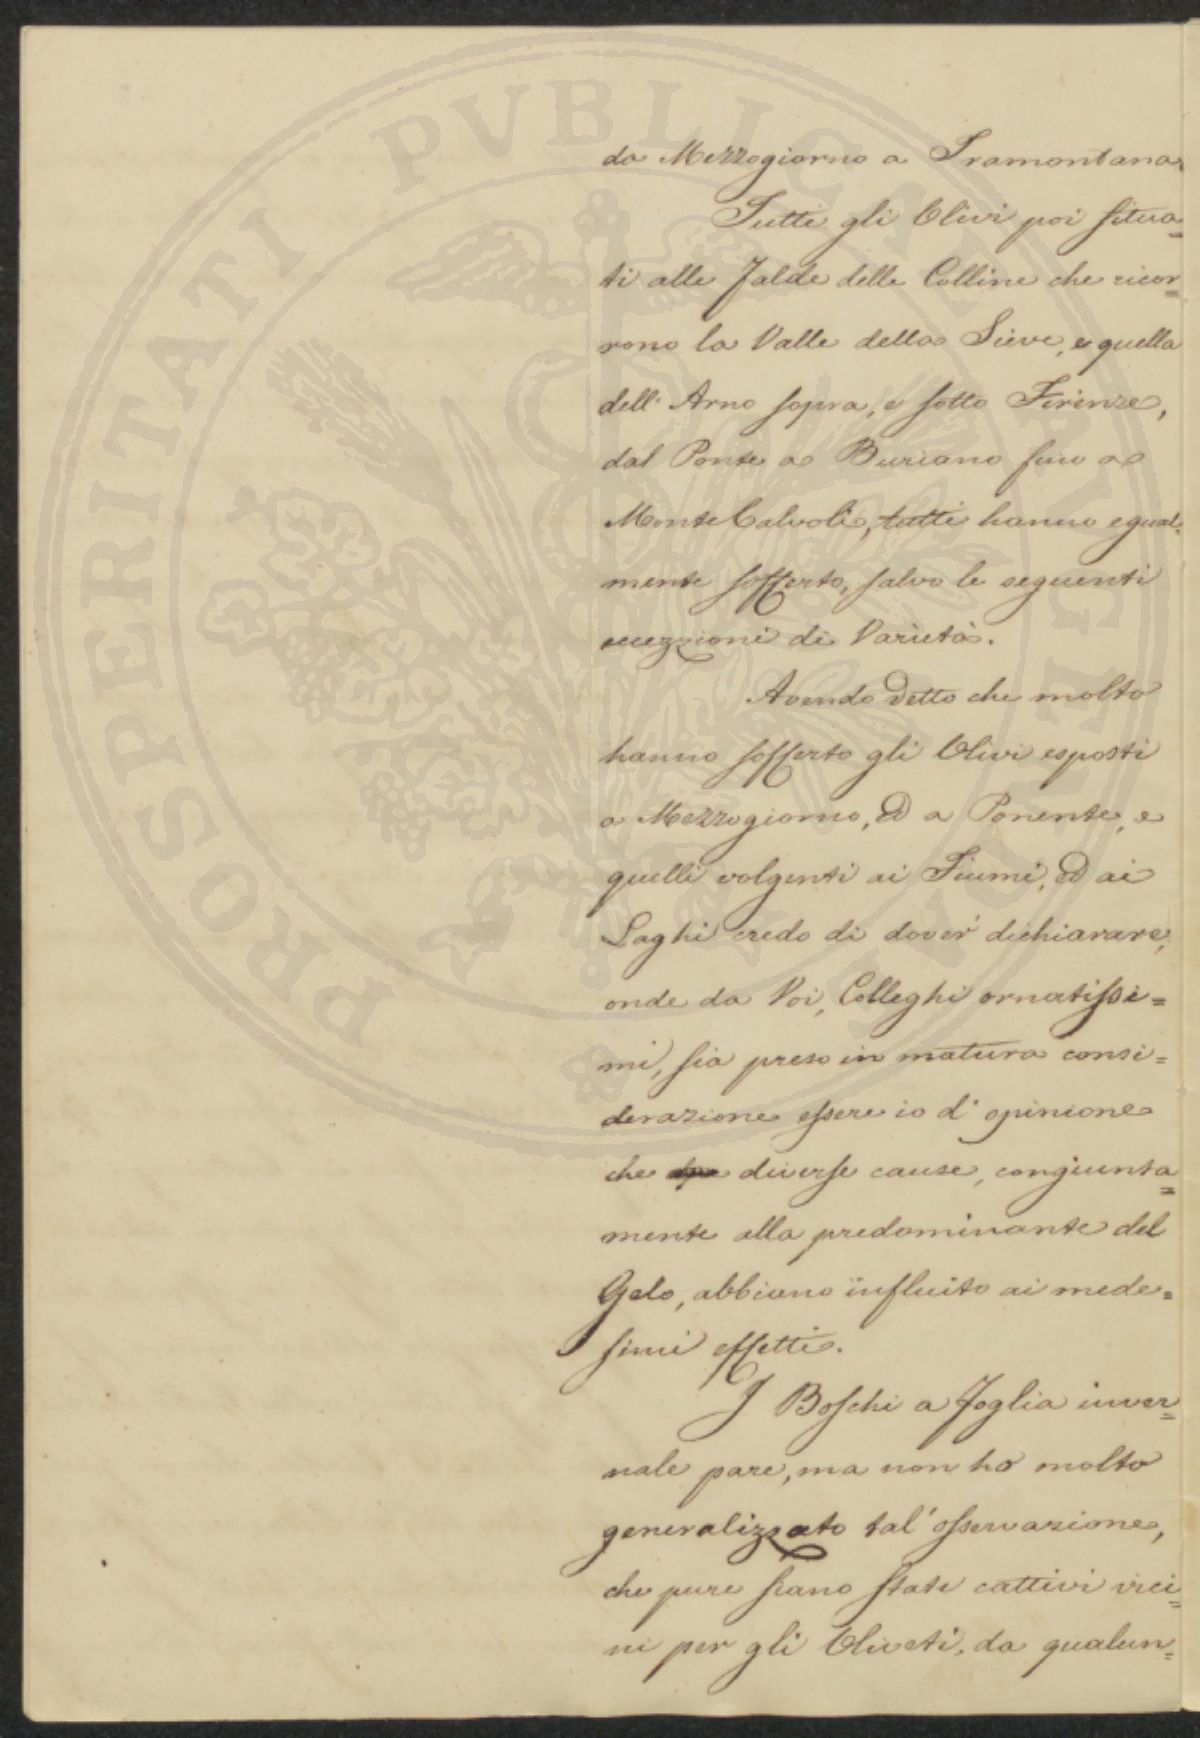 da Mezzogiorno a Tramontana.
Tutti gli Olivi poi situa=
ti alle Falde delle Colline che ricor=
rono la Valle della Sieve, e quella
dell'Arno sopra, e sotto Firenze,
dal Ponte a Buriano fino a
MonteCalvoli, tutti hanno egual=
mente sofferto, salvo le seguenti
eccezzioni di Varietà.
Avendo detto che molto
hanno sofferto gli Olivi esposti
a Mezzogiorno, ed a Ponente, e
quelli volgenti ai Fiumi, ed ai
Laghi credo di dover dichiarare,
onde da Voi, Colleghi ornatissi=
mi, sia preso in matura consi=
derazione essere io d'opinione
che diverse cause, congiunta=
mente alla predominante del
Gelo, abbiano influito ai mede=
simi effetti.
I Boschi a foglia inver=
nale pare, ma non ho molto
generalizzato tal'osservazione,
che pure siano stati cattivi vici=
ni per gli Oliveti, da qualun=
PROSPERITATI PVBLICAE